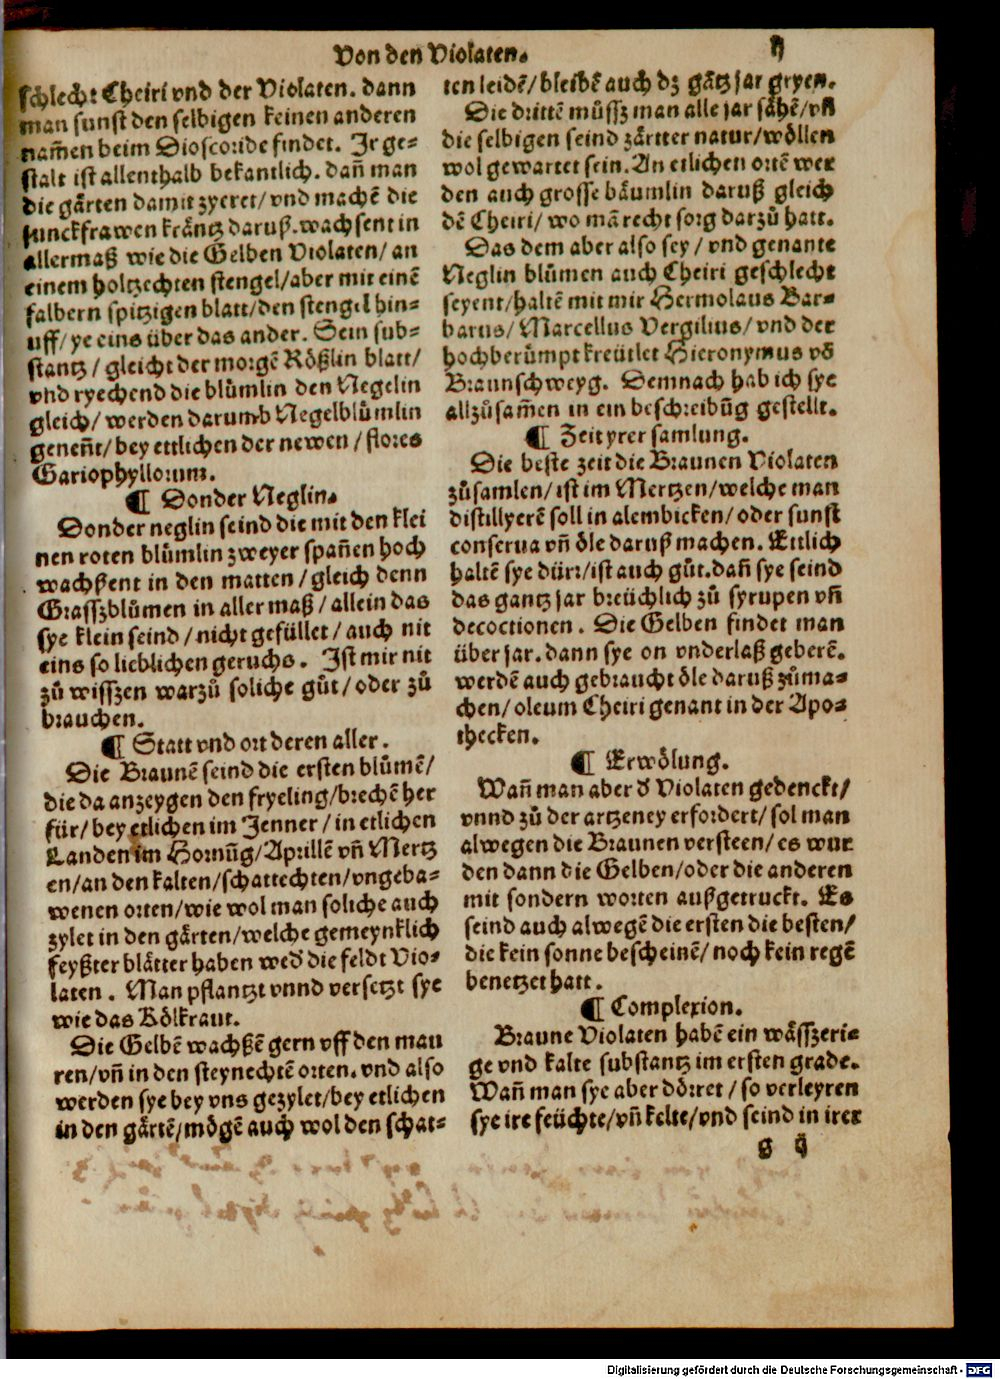 Von den Violaten.
schlecht Cheiri vnd der Violaten. dann
man sunst den selbigen keinen anderen
nam̃en beim Dioscoride findet. Jr ge-
stalt ist allenthalb bekantlich. dañ man
die gärten damit zyeret/ vnd machē die
junckfrawen kräntz daruß. wachsent in
allermaß wie die Gelben Violaten/ an
einem holtzechten stengel/ aber mit einē
falbern spitzigen blatt/ den stengel hin-
uff/ ye eins über das ander. Sein sub-
stantz/ gleicht der morgē Rößlin blatt/
vnd ryechend die blůmlin den Negelin
gleich/ werden darumb Negelblůmlin
genent̃/ bey ettlichen der newen/ flores
Gariophyllorum.
¶ Donder Neglin.
Donder neglin seind die mit den klei
nen roten blůmlin zweyer spañen hoch
wachßent in den matten/ gleich denn
Grasszblůmen in aller maß/ allein das
sye klein seind/ nicht gefüllet/ auch nit
eins so lieblichen geruchs. Jst mir nit
zů wisszen warzů soliche gůt/ oder zů
brauchen.
¶ Statt vnd ort deren aller.
Die Braunē seind die ersten blůmē/
die da anzeygen den fryeling/ brechē her
für/ bey etlichen im Jenner/ in etlichen
Landen im Hornũg/ Aprillē vñ Mertz
en/ an den kalten/ schattechten/ vngeba-
wenen orten/ wie wol man soliche auch
zylet in den gärten/ welche gemeynklich
feyßter blätter haben wed̕ die feldt Vio-
laten. Man pflantzt vnnd versetzt sye
wie das Kölkraut.
Die Gelbē wachßē gern vff den mau
ren/ vñ in den steynechtē orten. vnd also
werden sye bey vns gezylet/ bey etlichen
in den gärtē/ mögē auch wol den schat-
ten leidē/ bleibē auch dz gātz jar gryen.
Die drittē můssz man alle jar sähē/ vñ
die selbigen seind zärtter natur/ wöllen
wol gewartet sein. An etlichen ortē wer
den auch grosse bäumlin daruß gleich
dē Cheiri/ wo mā recht sorg darzů hatt.
Das dem aber also sey/ vnd genante
Neglin blůmen auch Cheiri geschlecht
seyent/ haltē mit mir Hermolaus Bar-
barus/ Marcellus Vergilius/ vnd der
hochberůmpt kreütler Hieronymus vō
Braunschweyg. Demnach hab ich sye
allzůsam̃en in ein beschreibũg gestellt.
¶ Zeit yrer samlung.
Die beste zeit die Braunen Violaten
zůsamlen/ ist im Mertzen/ welche man
distillyerē soll in alembicken/ oder sunst
conserua vñ öle daruß machen. Ettlich
haltē sye dürr/ ist auch gůt. dañ sye seind
das gantz jar breüchlich zů syrupen vñ
decoctionen. Die Gelben findet man
über jar. dann sye on vnderlaß geberē.
werdē auch gebraucht öle daruß zůma-
chen/ oleum Cheiri genant in der Apo-
thecken.
¶ Erwölung.
Wañ man aber d̕ Violaten gedenckt/
vnnd zů der artzeney erfordert/ sol man
alwegen die Braunen versteen/ es wur
den dann die Gelben/ oder die anderen
mit sondern worten außgetruckt. Es
seind auch alwegē die ersten die besten/
die kein sonne bescheinē/ noch kein regē
benetzet hatt.
¶ Complexion.
Braune Violaten habē ein wässzeri-
ge vnd kalte substantz im ersten grade.
Wañ man sye aber dörret/ so verleyren
sye ire feüchte/ vñ kelte/ vnd seind in irer
Digitalisierung gefördert durch die Deutsche Forschungsgemeinschaft - DFG